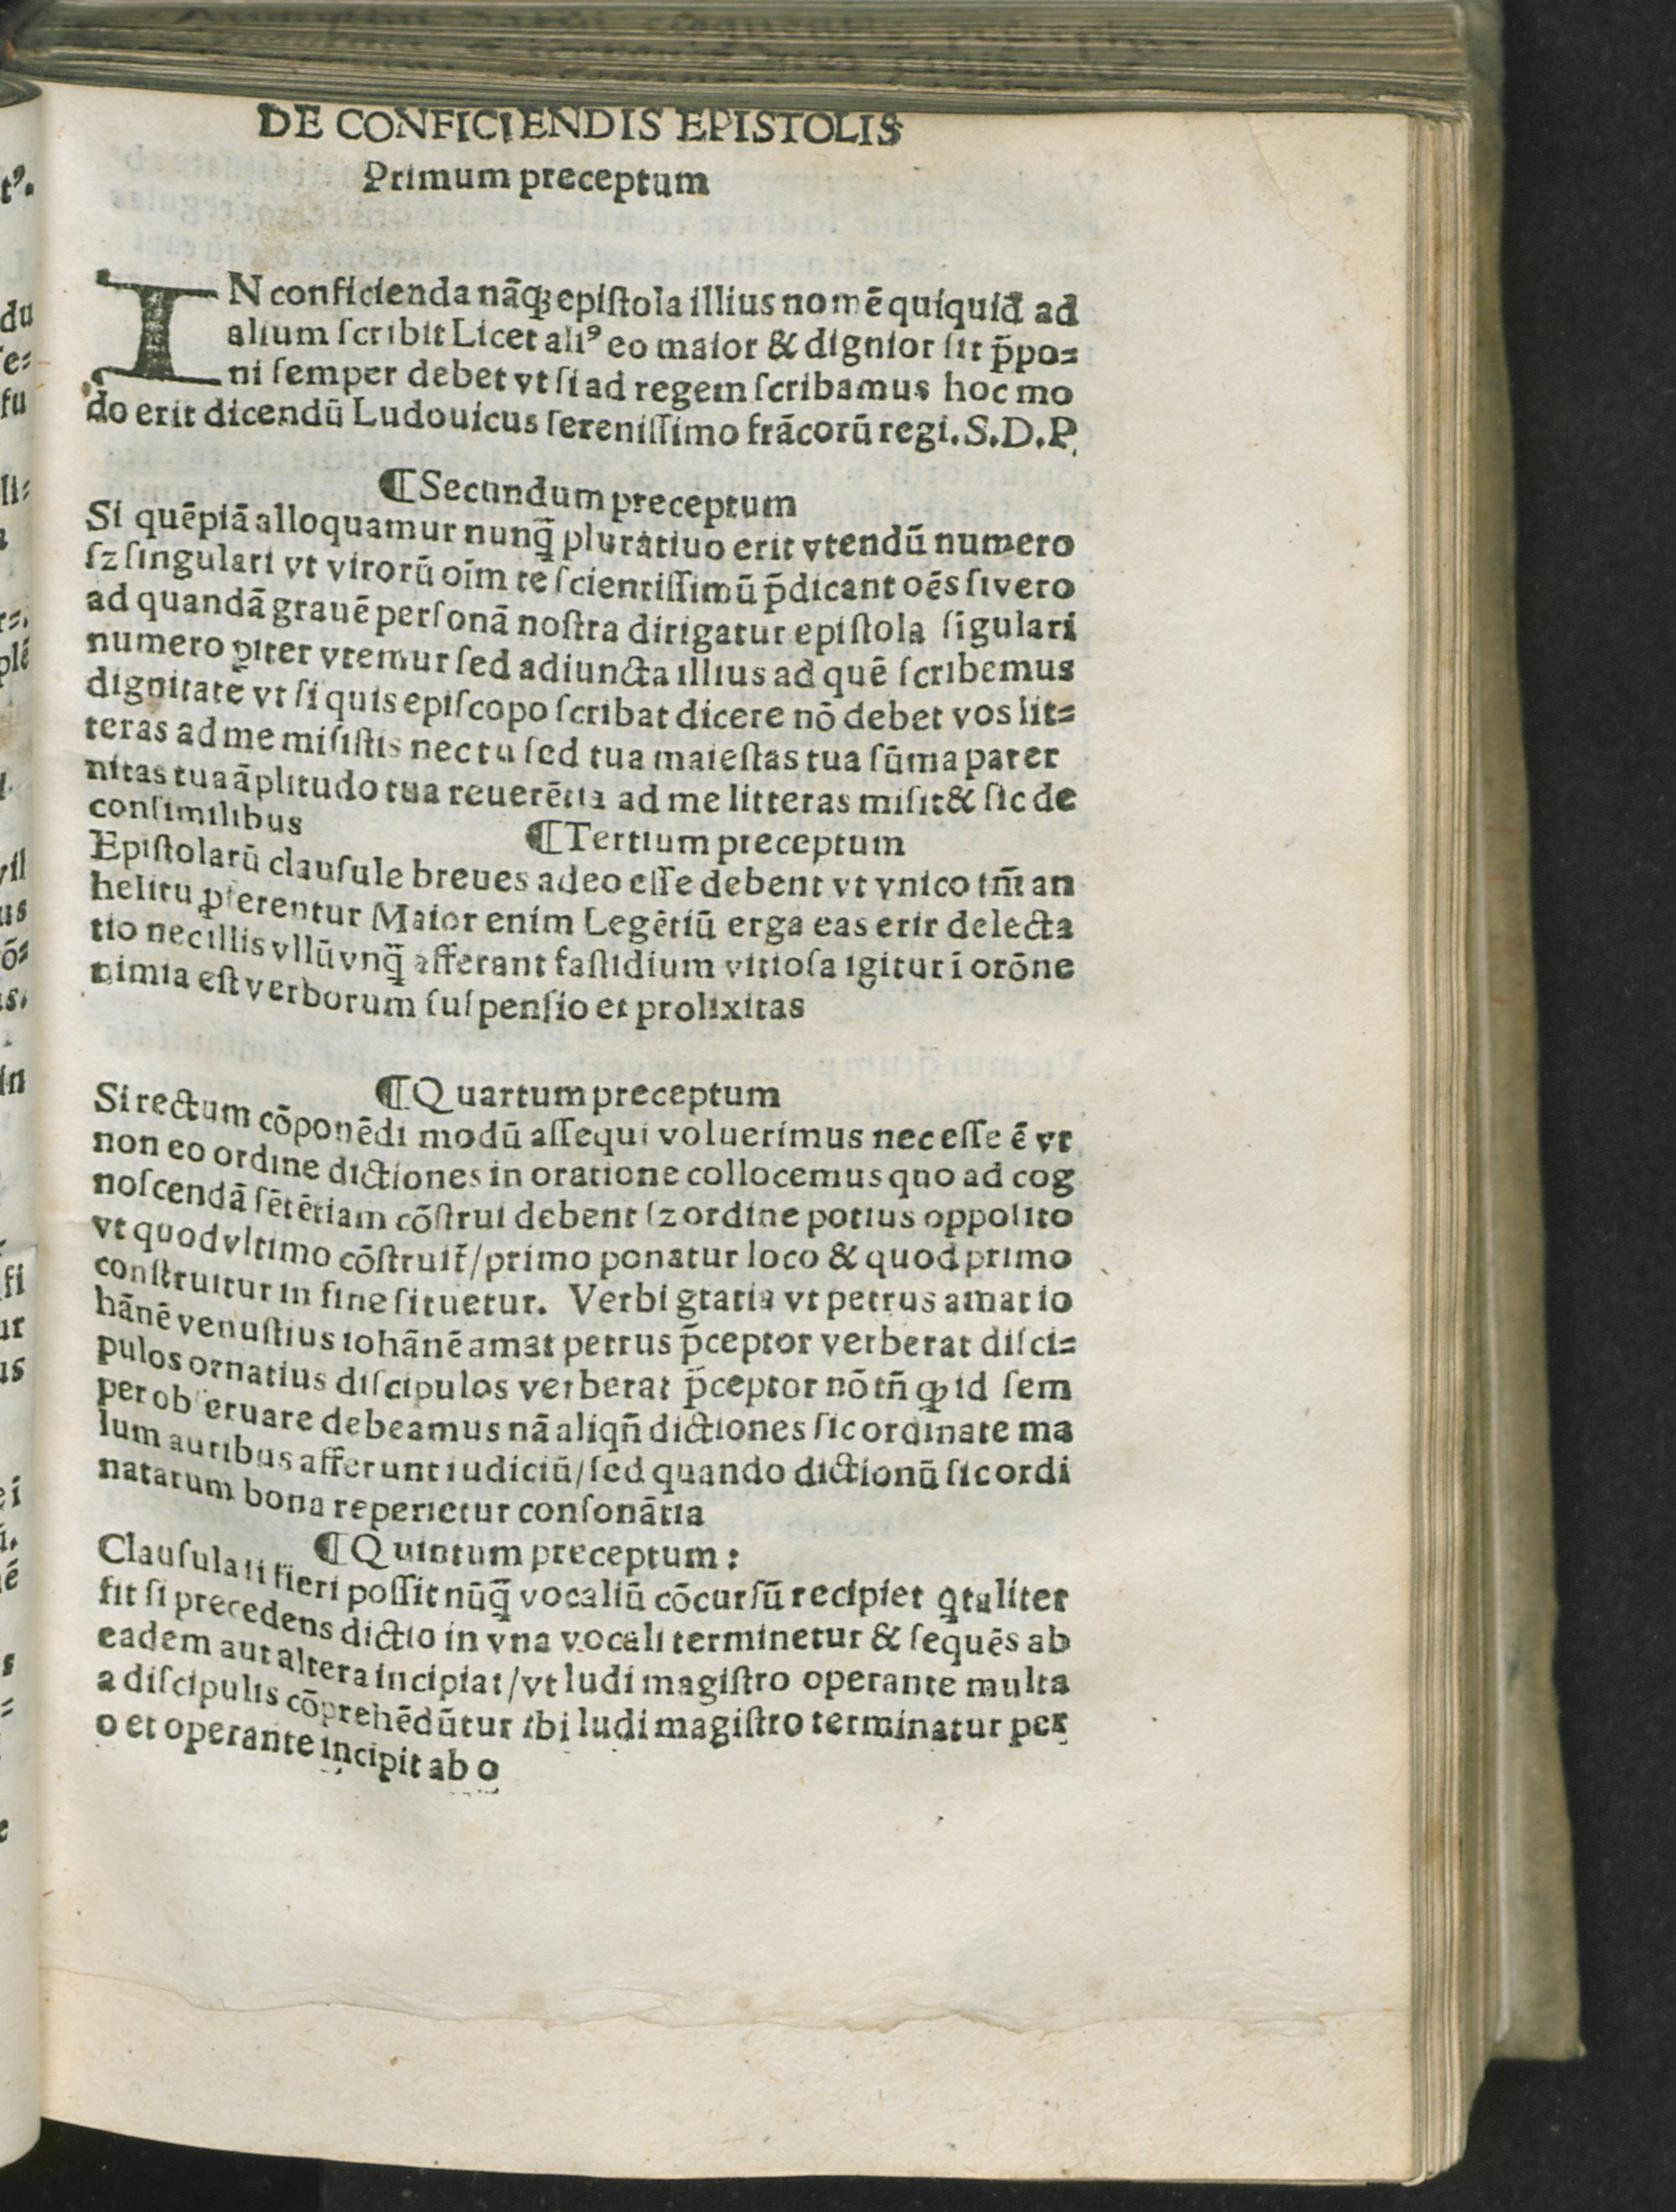 DE CONFICIENDIS EPISTOLIS
Primum preceptum
IN conficienda nāqꝫ epiſtola illius nomē quiquid ad
alium ſcribit Licet aliꝰ eo maior & dignior ſit p̄po⸗
ni ſemper debet vt ſi ad regem ſcribamus hoc mo
do erit dicendū Ludouicus ſereniſſimo frācorū regi. S. D. P.
¶ Secundum preceptum
Si quēpiā alloquamur nunq̄ pluratiuo erit vtendū numero
ſꝫ ſingulari vt virorū oīm te ſcientiſſimū p̄dicant oēs ſi vero
ad quandā grauē perſonā noſtra dirigatur epiſtola ſigulari
numero ꝑiter vtemur ſed adiuncta illius ad quē ſcribemus
dignitate vt ſi quis epiſcopo ſcribat dicere nō debet vos lit⸗
teras ad me miſiſtis nec tu ſed tua maieſtas tua ſūma pater
nitas tua āplitudo tua reuerētia ad me litteras miſit & ſic de
conſimilibus
¶ Tertium preceptum
Epiſtolarū clauſule breues adeo eſſe debent vt vnico tm̄ an
helitu ꝓferentur Maior enim Legētiū erga eas erit delecta
tio nec illis vllū vnq̄ afferant faſtidium vitioſa igitur ī orōne
nimia eſt verborum ſuſpenſio et prolixitas
¶ Quartum preceptum
Si rectum cōponēdi modū aſſequi voluerimus neceſſe ē vt
non eo ordine dictiones in oratione collocemus quo ad cog
noſcendā ſētētiam cōſtrui debent ſꝫ ordine potius oppoſito
vt quod vltimo cōſtruit̄ / primo ponatur loco & quod primo
conſtruitur in fine ſituetur. Verbi gratia vt petrus amat io
hānē venuſtius iohānē amat petrus p̄ceptor verberat diſci⸗
pulos ornatius diſcipulos verberat p̄ceptor nō tn̄ ꝙ id ſem
per obſeruare debeamus nā aliqn̄ dictiones ſic ordinate ma
lum auribus afferunt iudiciū / ſed quando dictionū ſic ordi
natarum bona reperietur conſonātia
¶ Quintum preceptum :
Clauſula ſi fieri poſſit nūq̄ vocaliū cōcurſū recipiet q̄ taliter
fit ſi precedens dictio in vna vocali terminetur & ſequēs ab
eadem aut altera incipiat / vt ludi magiſtro operante multa
a diſcipulis cōprehēdūtur ibi ludi magiſtro terminatur per
o et operante incipit ab o